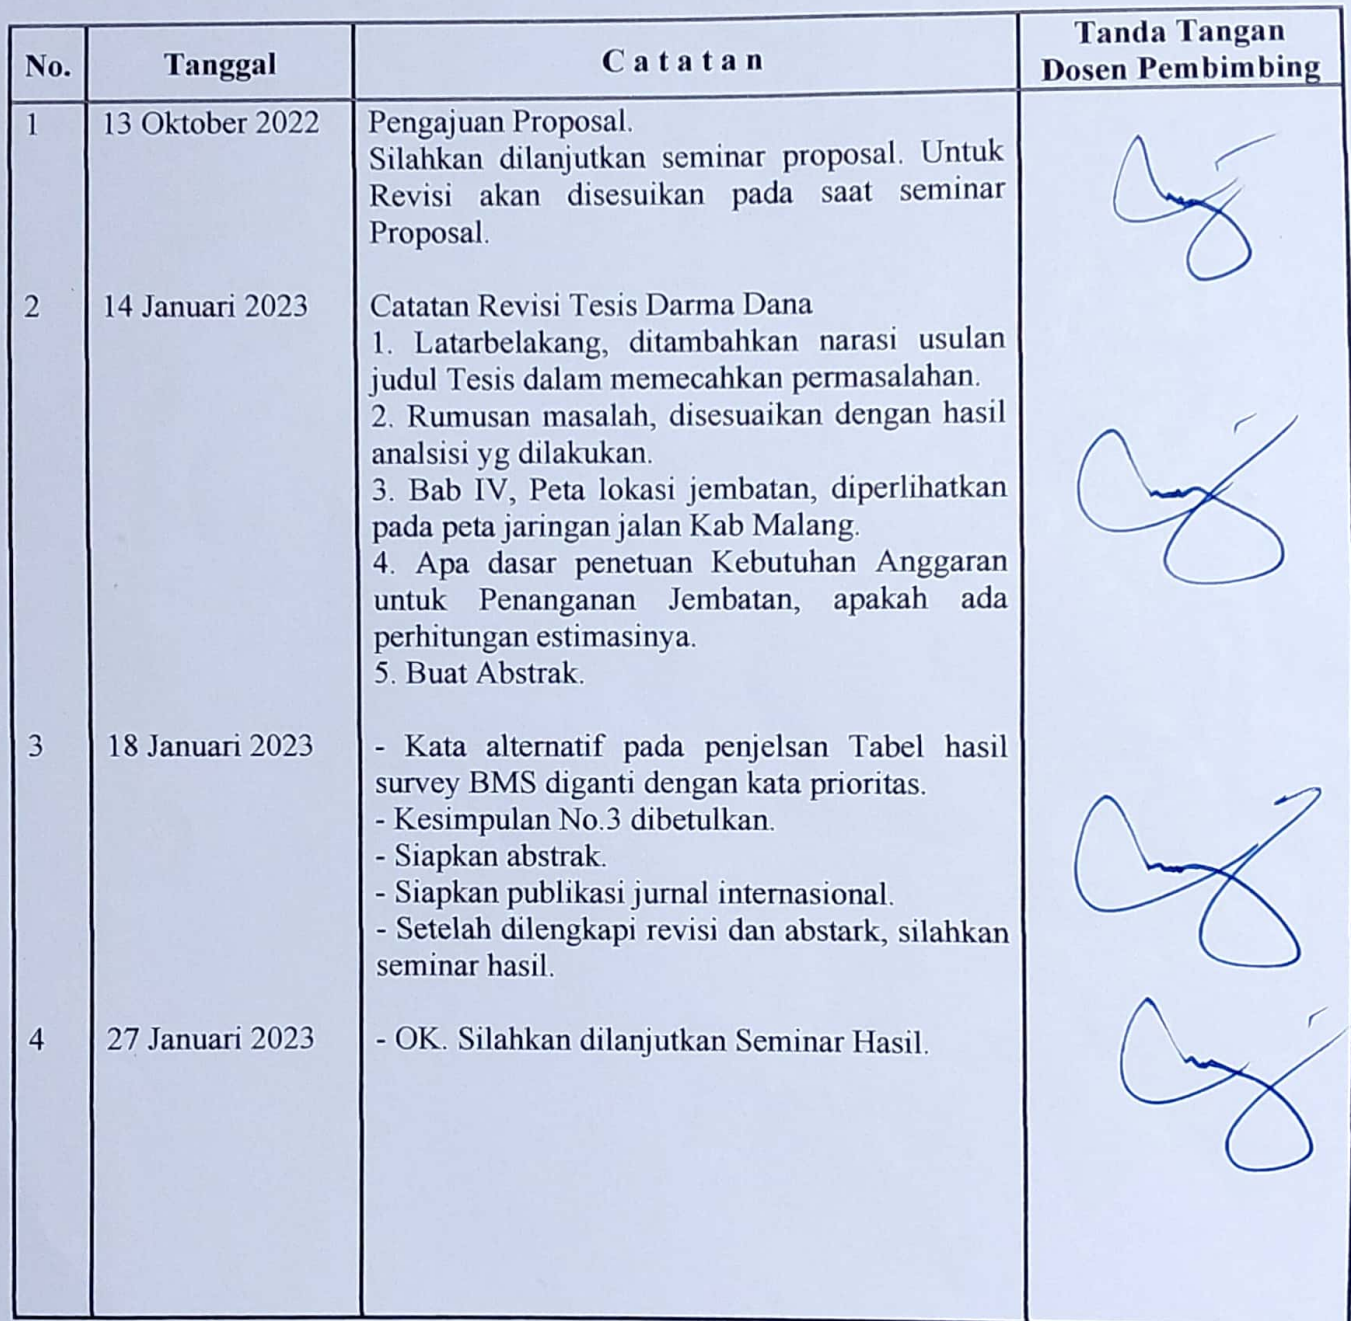 No. Tanggal C a t a t a n Tanda Tangan
Dosen Pembimbing
1 13 Oktober 2022 Pengajuan Proposal.
Silahkan dilanjutkan seminar proposal. Untuk
Revisi akan disesuikan pada saat seminar
Proposal.
2 14 Januari 2023 Catatan Revisi Tesis Darma Dana
1. Latarbelakang, ditambahkan narasi usulan
judul Tesis dalam memecahkan permasalahan.
2. Rumusan masalah, disesuaikan dengan hasil
analsisi yg dilakukan.
3. Bab IV, Peta lokasi jembatan, diperlihatkan
pada peta jaringan jalan Kab Malang.
4. Apa dasar penetuan Kebutuhan Anggaran
untuk Penanganan Jembatan, apakah ada
perhitungan estimasinya.
5. Buat Abstrak.
3 18 Januari 2023 - Kata alternatif pada penjelsan Tabel hasil
survey BMS diganti dengan kata prioritas.
- Kesimpulan No.3 dibetulkan.
- Siapkan abstrak.
- Siapkan publikasi jurnal internasional.
- Setelah dilengkapi revisi dan abstark, silahkan
seminar hasil.
4 27 Januari 2023 - OK. Silahkan dilanjutkan Seminar Hasil.